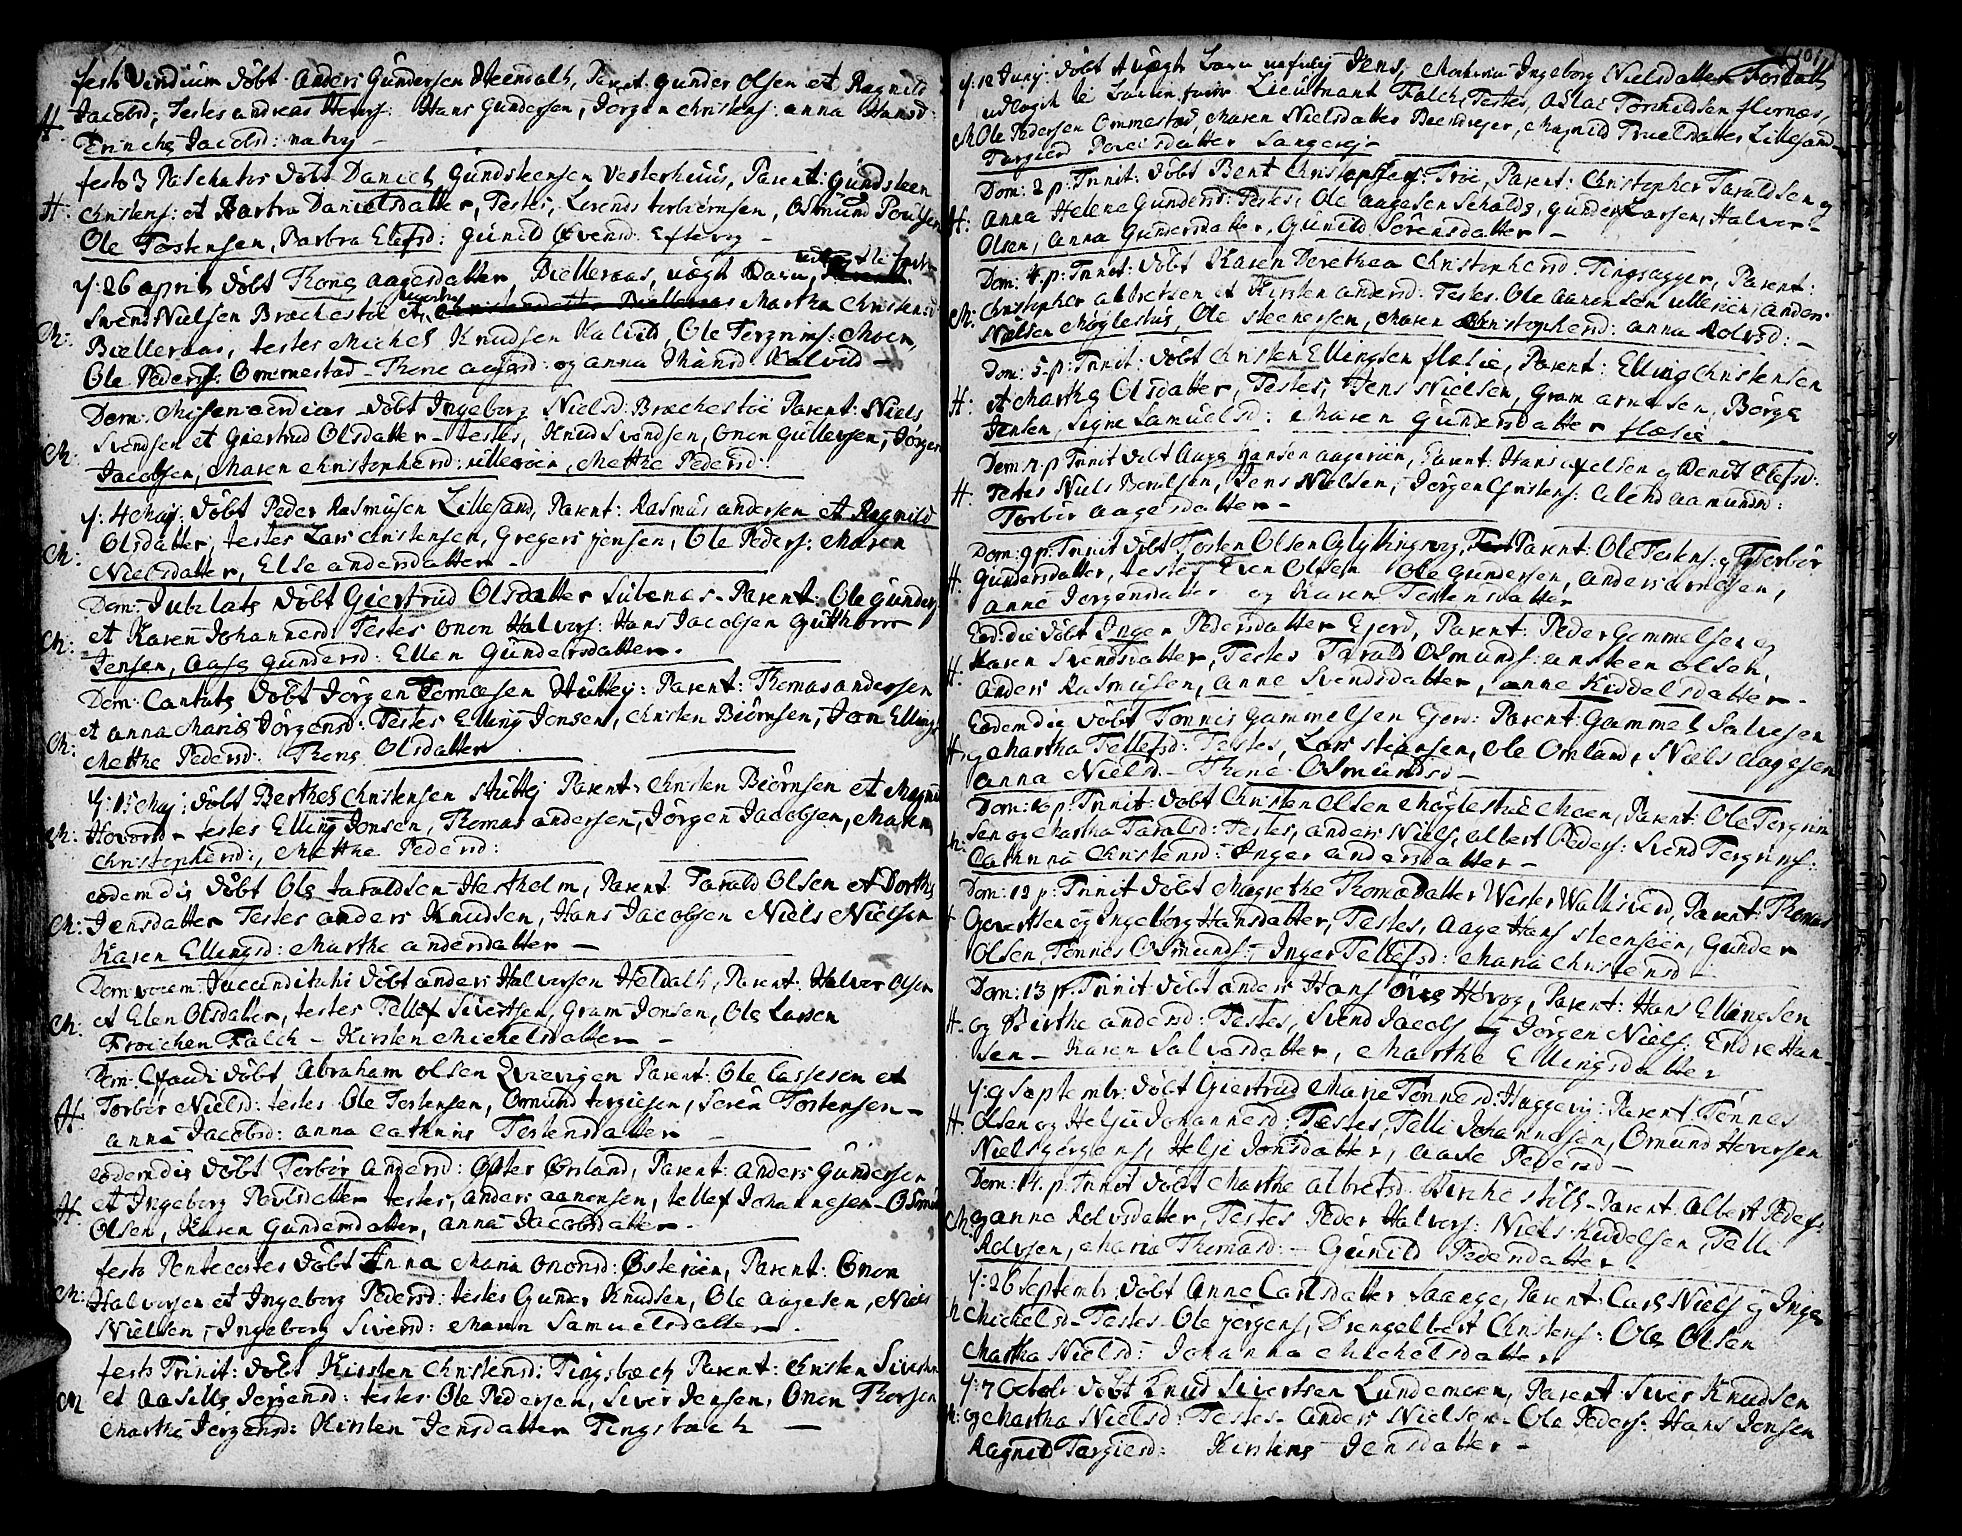 festo viridium Døbt Anders Gundersen Heendals, Parent gunder Olsen et Ragnild
H. Jacobsd; Testes andreas Hans: Hans Gundersen, Jørgen Christens: anna Hansd:
Jacobsd:
festo 3 Paschatos Døbt Daniel Gundsteensen Vesterhuus, Parent: gundsteen
H. Christens: et Barbra Danielsdatter, Testes, Osmund Poulsen
Ole Tostensen, Barbra Elefsd: gunild Øvensd:
y: 26 april Døbt Thone aagesdatter Bielleraas, uægte Barn,
Svend Nielsen Bræchestøe Martha Christensd
Ch: Bielleraas, testes Michel Knudsen Kalvild, Ole Tergrims: Moen,
Ole Peders: Ommestad - Thone aagesd: og anna Kalvild -
Dom: Misericordias - Døbt Ingeborg Nielsd: Bræchestøe Parent: Niels
Ch: Svendsen et Giertrud Olsdatter - testes, Knud Svendsen, Onon Gullevsen, Jørgen
Jacobsen, Maren Christophersd: ullerøen, Mette Pedersd:
y: 4 Maj: Døbt Peder Rasmusen Lillesand, Parent: Rasmus andersen et Ragnild
Ch: Olsdatter, testes Lars Christensen, Gregers jensen, Ole Peders: Maren
Nielsdatter, Else andersdatter -
Dom: Jubilate Døbt Giertrud Olsdatter Parent: Ole gunders:
Ch: et Karen Johannesd: Testes Onon Halvors: Hans Jacobsen Gutthorm
Jensen, Aase gundersd: Ellen Gundersdatter.
Dom: Cantate Døbt Jørgen Tomæsen Støllej: Parent: Thomas andersen
Ch: et anna Maria Jørgensd: Testes Elling Jonsen, Christen Biørnsen, Jon Ellings
Mette Pedersd: Thone Olsdatter
y: 15 Maj: Døbt Berthel Christensen Støttej Parent: Christen Biørnsen et Magnil
Ch: Hovorsd - testes Elling Jonsen, Thomas andersen, Jørgen Jacobsen, Maren
Christophersd:, Mette Pedersd:
eodem die Døbt Ole taraldsen Hestholm, Parent Tarald Olsen et Dorthe
Ch: Jensdatter Testes anders Knudsen, Hans Jacobsen Niels Nielsen
Karen Ellingsd: Marthe andersdatter -
Dom: vocem Jucunditatis Døbt anders Halvorsen Heldals, Parent: Halvor Olsen
Ch: et Elen Olsdatter, testes Tellef Sivertsen, Gram Jonsen, Ole Larsen
Frøichen Falch - Kirsten Michelsdatter -
Dom: Exaudi Døbt Abraham olsen Qvievigen Parent: Ole Cassesen et
H. Torbør Nielsd: testes Ole Tostensen, Osmund torgiesen, Søren Tostensen -
anna Jacobsd: anna Cathrine Tostensdatter
eodem die Døbt Torbør Andersd: Øster Ørland, Parent: anders Gundersen
H. et Ingeborg Povelsdatter testes, anders aanonsen, tellef Johannesen - Osmun
Olsen, Karen Gundersdatter, anna Jacobsdatter -
festo Pentecostes Døbt Anna Maria Ononsd: Østerøen, Parent: Onon
Ch: Halvorsen et Ingeborg Pedersd: testes Gunder Knudsen, Ole aagesen, Niels
Nielsen, Ingeborg Siversd: Maren Samuelsdatter.
festo Trinit: Døbt Kirsten Christensd: Tingsbæch Parent: Christen Siversen
Ch et aasille Jørgensd: testes Ole Pedersen, Siver Jensen, Onon Thorsen
Marthe Jørgensd: Kirsten Jensdatter Tingsbæch -
101
y: 12 Junij: Døbt et uægte Barn nafnlig Jens, Moderen Ingeborg Nielsdatter
udlagde til Barne fader Lieutnant Falch; Testes, Aslac Tormildsen
Ch Ole Pedersen Ommestad, Maren Nielsdatter Magnild Truelsdatter Lillesand
Targierd Povelsdatter
Dom: 2 p: Trinit: Døbt Bent Christophers: Trøe, Parent: Christopher Taraldsen og
H: Anna Helene Gundersd: Testes, Ole aagesen gunder Larsen, Halvor -
Olsen, anna Gundersdatter, Gunild Sørensdatter -
Dom: 4. p: Trinit: Døbt Karen Dorethea Christophersd: Tingsagger, Parent:
Ch: Christopher albretsen et Kirsten andersd: Testes: Ole aanensen ullerøen, anders
Nielsen Møglestue, Ole Steenersen, Maren Christophersd: anna Rolvsd: -
Dom: 5. p: Trinit: Døbt Christen Ellingsen flæsie, Parent: Elling Christensen
H. et Martha Olsdatter, Testes, Hens Nielsen, Gram arnesen, Børge
Jensen, Signe Samuelsd: Maren Gundersdatter flæsie -
Dom: 7 p Trinit Døbt Aage Hansen aagerøen, Parent: Hans og Elefsd:
H Testes Niels Jens Nielsen, Jørgen Christens: aamundsd:
Torbør aagesdatter -
Dom: 9 p. Trinit Døbt Tosten Olsen Parent: Ole Testens: og Torbør
H. Gundersdatter, testes Even Olsen Ole gundersen, anders arnesen,
anne Jorgensdatter og Karen Tostensdatter
Eodem die Døbt Inger Pedersdatter Ejerd, Parent: Peder Gammelsen og
H. Karen Svendsdatter, Testes Tarald Osmunds: ansteen olsen,
anders Rasmusen, anne Svendsdatter, anne Kiddelsdatter -
Eodem die Døbt Tønnes gammelsen Ejerd: Parent: Gammel Salvesen
H. og Martha Tellefsd: Testes, Lars stiansen, Ole Omland, Niels Aagesen
anna Nielsd - Thone Osmundsd -
Dom: 10 p: Trinit: Døbt Christen Olsen Møglestue Moen, Parent: Ole Tergrim
h: sen og Martha Taraldsd: Testes, anders Niels, albert Peders: Svend Tergrims:
Cathrina Christensd: Inger andersdatter -
Dom: 12 p: Trinit Døbt Magrethe Thomasdatter Wester Parent: Thomas
Govertsen og Ingeborg Hansdatter, Testes, Aage Hans Steensøen, Gunder
Olsen, Tønnes Osmunds: Inger Tellefsd: Maria Christensd -
Dom: 13 p. Trinit Døbt anders Hans Høvog, Parent: Hans Ellingsen
H. og Birthe andersd: Testes, Svend Jacobs og Jørgen Niels: Endre Han
sen - Karen Salvesdatter, Marthe Ellingsdatter
y: 9 Septembr: Døbt Giertrud Marie Tønnesd: Hæggevig: Parent: Tønnes
H. Olsen og Helje Johannesd: Testes, Telle Johannesen, Omund Hoversen
Niels Helje Jonsdatter, aase Pedersd -
Dom: 14. p: Trinit Døbt Marthe albretsd: Parent: Albert Peders:
Ch og anne Rolvsdatter, Testes Peder Halvors: Niels Kiddelsen, Telle
Rolvsen, Maria Thomasd: - Gunild Pedersdatter
y: 26 Septembr: Døbt Anne Carlsdatter Saange, Parent: Carls Niels og Inger
h Michelsd - Testes - Ole jørgens, Drengelbert Christens: Ole Olsen
Martha Nielsd: Johanna Michelsdatter
y: 7 Octobr Døbt Knud Sivertsen Lundemoen, Parent: Siver Knudsen
h: og Martha Nielsd: Testes - anders Nielsen - Ole Peders: Hans Jensen
Ragnild Targiersd: Kirstine Jensdatter -